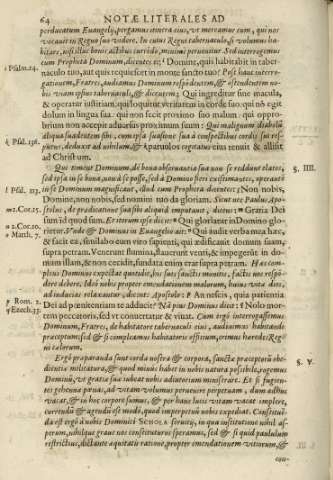 64 NOTÆ LITERALES AD
perducatum Euangelij, pergamus itinera eius, vt mereamur eum, qui nos
vocauit in Regno suo videre. In cuius Regni tabernaculo, si volumus ha-
bitare, nisi illuc bonis actibus currido, minimè peruenitur. Sed interrogemus
i Psalm.14. cum Propheta Dominum, dicentes ei: i Domine, quis habitabit in taber-
naculo tuo, aut quis requiescet in monte sancto tuo? Post hanc interro-
gationem, Fratres, audiamus Dominum respondentem, & ostendentem no-
bis viam ipsius tabernaculi, & dicentem; Qui ingreditur sine macula,
& operatur iustitiam: qui loquitur veritatem in corde suo, qui nõ egit
dolum in lingua sua: qui non fecit proximo suo malum: qui oppro-
brium non accepit aduersus proximum suum: Qui malignum diabolũ
aliqua suadentem sibi, cum ipsa suasione sua à conspectibus cordis sui res-
k Psal. 136. puens, deduxit ad nihilum, & k paruulos cogitatus eius tenuit & allisit
ad Christum.
Qui timentes Dominum, de bona obseruantia sua non se reddunt elatos, §. IIII.
sed ipsa in se bona, non à se posse, sed à Domino fieri existimantes, operantẽ
l Psal. 113. in se Dominum magnificant, illud cum Propheta dicentes: l Non nobis,
Domine, non nobis, sed nomini tuo da gloriam. Sicut nec Paulus Apo-
m 1.Cor.15. stolus, de prædicatione sua sibi aliquid imputauit, dicens: m Gratia Dei
sum id quod sum. Et iterum ipse dicit: n Qui gloriatur in Domino glo-
n 2.Cor.10. rietur. Vnde & Dominus in Euangelio ait: o Qui audit verba mea hæc,
o Matth. 7. & facit ea, similabo eum viro sapienti, qui ædificauit domum suam,
supra petram. Venerunt flumina, flauerunt venti, & impegerũt in do-
mum illam, & non cecidit, fundata enim erat supra petram. Hæc com-
plens Dominus expectat quotidie, his suis sanctis monitis, factis nos respõ-
dere debere. Ideò nobis propter emendationem malorum, huius vitæ dies,
ad inducias relaxantur, dicente Apostolo: p An nescis, quia patientia
p Rom. 2. Dei ad pœnitentiam te adducit? Nã pius Dominus dicit: q Nolo mor-
q Ezech.33. tem peccatoris, sed vt conuertatur & viuat. Cum ergò interrogassemus
Dominum, Fratres, de habitatore tabernaculi eius, audiuimus habitandi
præceptum: sed & si compleamus habitatoris officium, erimus hæredes Reg-
ni cælorum.
Ergò præparanda sunt corda nostra & corpora, sanctæ præceptorũ obe- §. V.
dientiæ militatura, & quod minùs habet in nobis natura possibile, rogemus
Dominũ, vt gratiæ suæ iubeat nobis adiutorium ministrare. Et si fugien-
tes gehennæ pœnas, ad vitam volumus peruenire perpetuam, dum adhuc
vacat, & in hoc corpore sumus, & per hanc lucis vitam vacat implere,
currendũ & agendũ est modò, quod in perpetuũ nobis expediat. Constituẽ-
da est ergò à nobis Dominici SCHOLA seruitij, in qua institutione nihil as-
perum, nihilque graue nos constituturos speramus, sed & si quid paululum
restrictius, dictante æquitatis ratione, propter emendationem vitiorum, &
con-